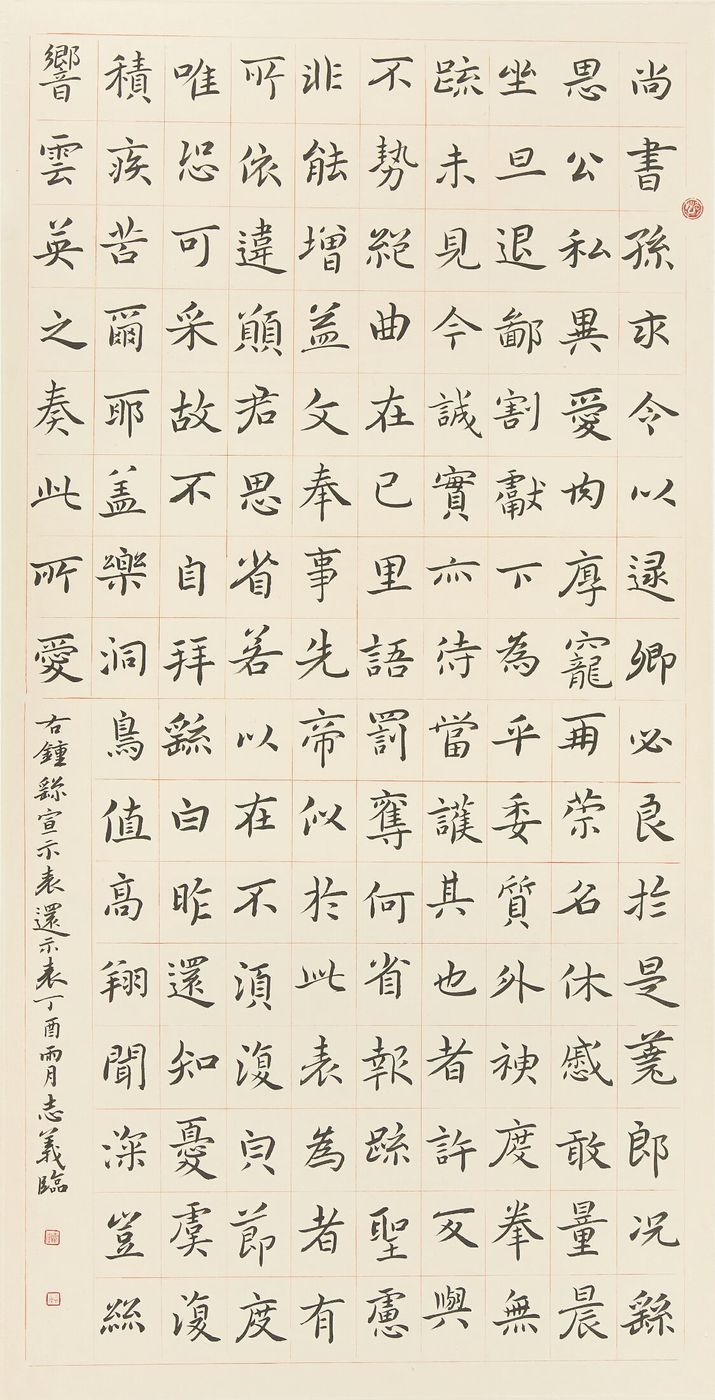 尚書孫求令以逯卿必良於是蕘郎况繇
思公私異愛肉厚寵再榮名休慼敢量晨
坐旦退鄙割獻下為乎委質外禆度拳無
疏未見今誠實亦待當護其也者許父與
不勢絕曲在已里語罰奪何省報疏聖慮
非能增益文奉事先帝似於此表為者有
所依違願君思省若以在不須復皃節度
唯恐可采故不自拜繇白昨還知憂虞復
積疾苦爾耶盖樂洞鳥值高翔聞深豈絲
響雲英之奏此所愛
右鍾繇宣示表還示表丁酉雨月志義臨